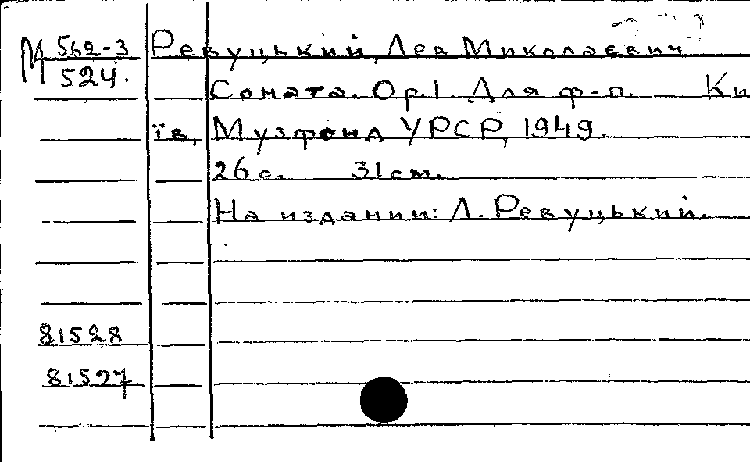 М 562-3 Ревуцький, Лев Миколаєвич
524.
Соната. Op.1. Для ф-п. Ки
їв, Музфонд УРСР, 1949.
26 с. 31 см.
На издании: Л. Ревуцький.
81528
81527